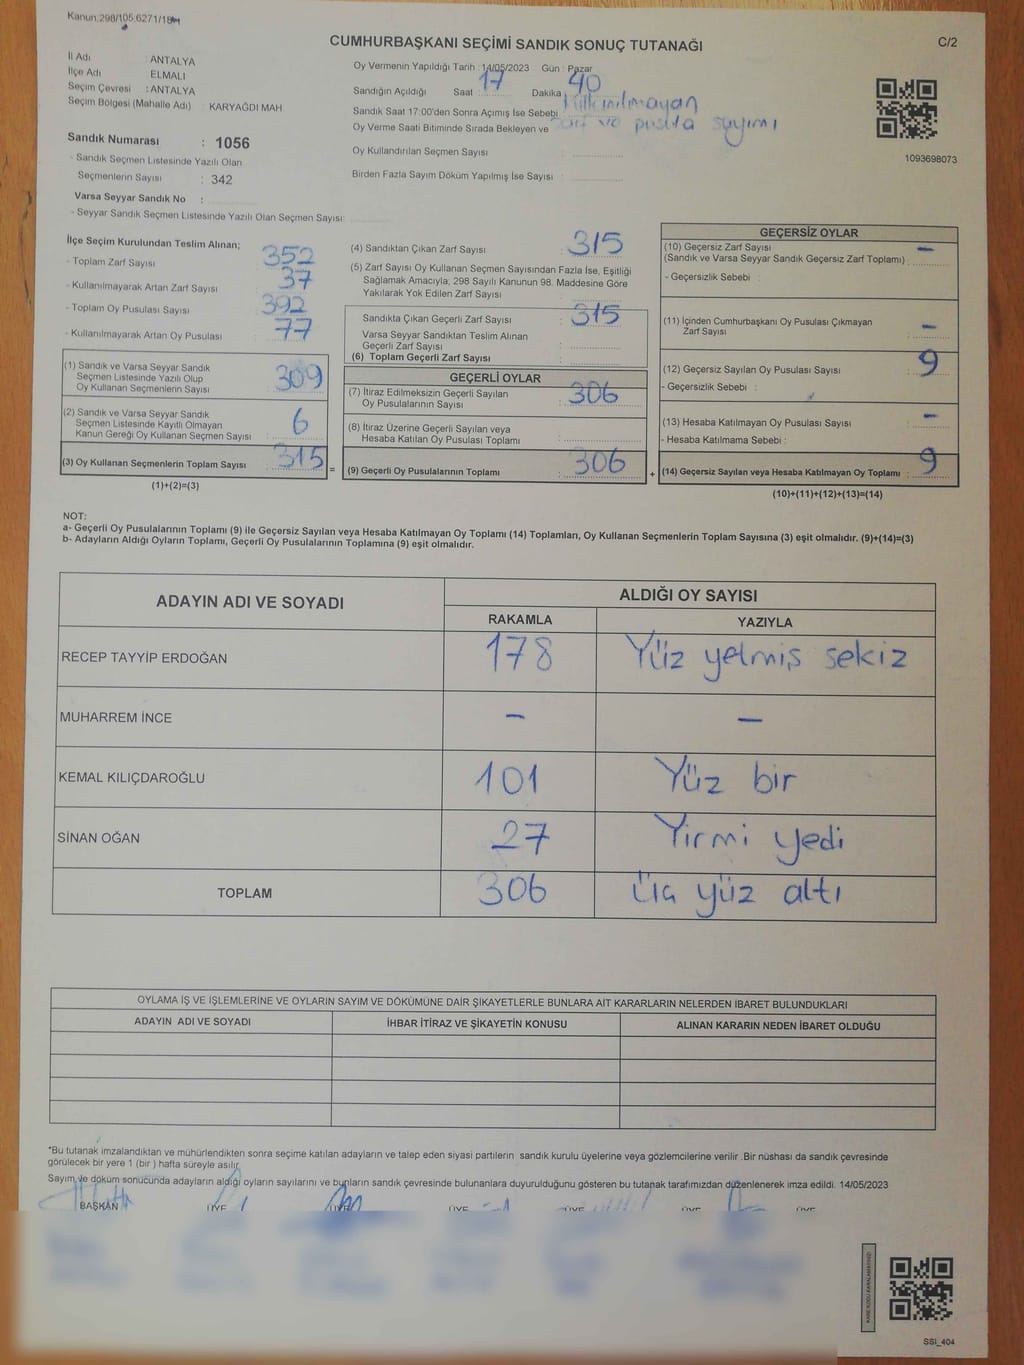 Kanun.298/105;6271/18M
CUMHURBAŞKANI SEÇİMİ SANDIK SONUÇ TUTANAĞI
C/2
İl Adı : ANTALYA
İlçe Adı : ELMALI
Seçim Çevresi : ANTALYA
Seçim Bölgesi (Mahalle Adı) : KARYAĞDI MAH
Sandık Numarası : 1056
- Sandık Seçmen Listesinde Yazılı Olan
Seçmenlerin Sayısı : 342
Varsa Seyyar Sandık No :
- Seyyar Sandık Seçmen Listesinde Yazılı Olan Seçmen Sayısı:
Oy Vermenin Yapıldığı Tarih : 14/05/2023 Gün : Pazar
Sandığın Açıldığı Saat : 17 Dakika : 40
Sandık Saat 17:00'den Sonra Açımış İse Sebebi : kullanılmayan
Oy Verme Saati Bitiminde Sırada Bekleyen ve zarf ve pusula sayımı
Oy Kullandırılan Seçmen Sayısı :
Birden Fazla Sayım Döküm Yapılmış İse Sayısı :
1093698073
İlçe Seçim Kurulundan Teslim Alınan;
- Toplam Zarf Sayısı : 352
- Kullanılmayarak Artan Zarf Sayısı : 37
- Toplam Oy Pusulası Sayısı : 392
- Kullanılmayarak Artan Oy Pusulası : 77
(1) Sandık ve Varsa Seyyar Sandık
Seçmen Listesinde Yazılı Olup
Oy Kullanan Seçmenlerin Sayısı : 309
(2) Sandık ve Varsa Seyyar Sandık
Seçmen Listesinde Kayıtlı Olmayan
Kanun Gereği Oy Kullanan Seçmen Sayısı : 6
(3) Oy Kullanan Seçmenlerin Toplam Sayısı : 315
(1)+(2)=(3)
=
(4) Sandıktan Çıkan Zarf Sayısı : 315
(5) Zarf Sayısı Oy Kullanan Seçmen Sayısından Fazla İse, Eşitliği
Sağlamak Amacıyla, 298 Sayılı Kanunun 98. Maddesine Göre
Yakılarak Yok Edilen Zarf Sayısı :
Sandıkta Çıkan Geçerli Zarf Sayısı : 315
Varsa Seyyar Sandıktan Teslim Alınan
Geçerli Zarf Sayısı :
(6) Toplam Geçerli Zarf Sayısı :
GEÇERLİ OYLAR
(7) İtiraz Edilmeksizin Geçerli Sayılan
Oy Pusulalarının Sayısı : 306
(8) İtiraz Üzerine Geçerli Sayılan veya
Hesaba Katılan Oy Pusulası Toplamı :
(9) Geçerli Oy Pusulalarının Toplamı : 306
+
GEÇERSİZ OYLAR
(10) Geçersiz Zarf Sayısı
(Sandık ve Varsa Seyyar Sandık Geçersiz Zarf Toplamı) : -
- Geçersizlik Sebebi :
(11) İçinden Cumhurbaşkanı Oy Pusulası Çıkmayan
Zarf Sayısı : -
(12) Geçersiz Sayılan Oy Pusulası Sayısı : 9
- Geçersizlik Sebebi :
(13) Hesaba Katılmayan Oy Pusulası Sayısı : -
- Hesaba Katılmama Sebebi :
(14) Geçersiz Sayılan veya Hesaba Katılmayan Oy Toplamı : 9
(10)+(11)+(12)+(13)=(14)
NOT:
a- Geçerli Oy Pusulalarının Toplamı (9) ile Geçersiz Sayılan veya Hesaba Katılmayan Oy Toplamı (14) Toplamları, Oy Kullanan Seçmenlerin Toplam Sayısına (3) eşit olmalıdır. (9)+(14)=(3)
b- Adayların Aldığı Oyların Toplamı, Geçerli Oy Pusulalarının Toplamına (9) eşit olmalıdır.
ADAYIN ADI VE SOYADI ALDIĞI OY SAYISI
RAKAMLA YAZIYLA
RECEP TAYYİP ERDOĞAN 178 Yüz yetmiş sekiz
MUHARREM İNCE - -
KEMAL KILIÇDAROĞLU 101 Yüz bir
SİNAN OĞAN 27 Yirmi yedi
TOPLAM 306 Üç yüz altı
OYLAMA İŞ VE İŞLEMLERİNE VE OYLARIN SAYIM VE DÖKÜMÜNE DAİR ŞİKAYETLERLE BUNLARA AİT KARARLARIN NELERDEN İBARET BULUNDUKLARI
ADAYIN ADI VE SOYADI İHBAR İTİRAZ VE ŞİKAYETİN KONUSU ALINAN KARARIN NEDEN İBARET OLDUĞU
*Bu tutanak imzalandıktan ve mühürlendikten sonra seçime katılan adayların ve talep eden siyasi partilerin sandık kurulu üyelerine veya gözlemcilerine verilir. Bir nüshası da sandık çevresinde
görülecek bir yere 1 (bir ) hafta süreyle asılır.
Sayım ve döküm sonucunda adayların aldığı oyların sayılarını ve bunların sandık çevresinde bulunanlara duyurulduğunu gösteren bu tutanak tarafımızdan düzenlenerek imza edildi. 14/05/2023
BAŞKAN ÜYE ÜYE ÜYE ÜYE ÜYE ÜYE
SSI_404